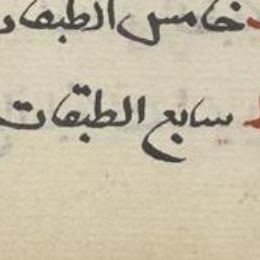 خامس الطبقات
سابع الطبقات